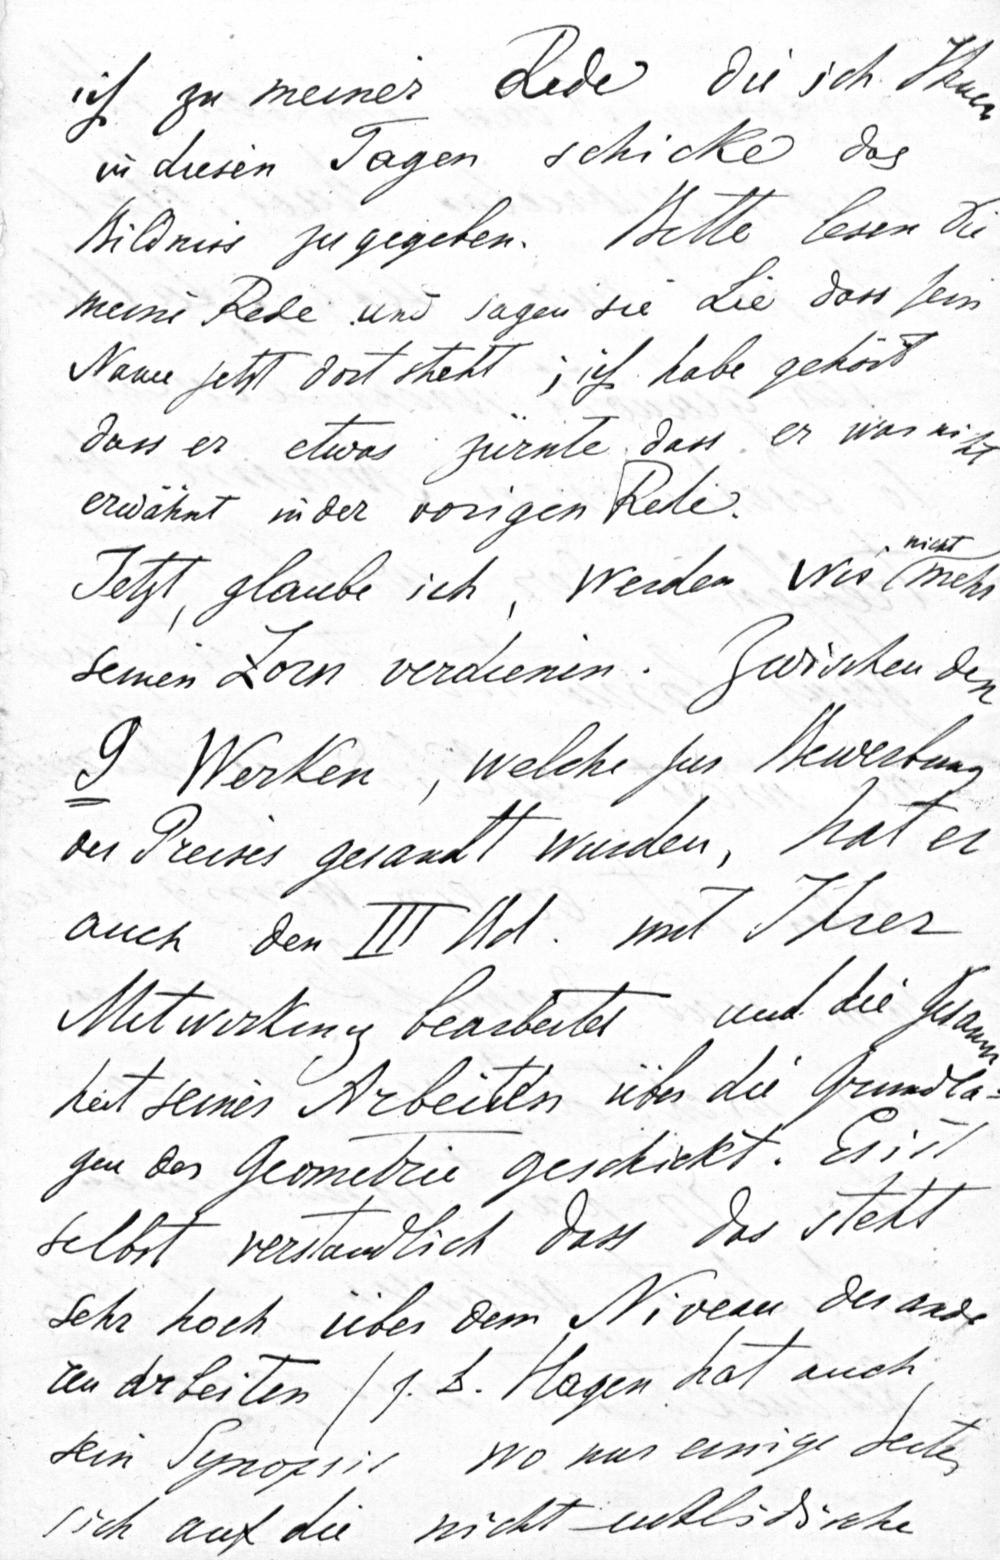 ich zu meiner Rede die ich Ihnen
in diesen Tagen schicke das
Bildniss zugegeben. Bitte lesen Sie
meine Rede und sagen sie Lie dass sein
Name jetzt dort steht; ich habe gehört
dass er etwas zürnte dass er war nicht
erwähnt in der vorigen Rede.
Jetzt, glaube ich, werden wir nicht mehr
seinen Zorn verdienen. Zwischen den
9 Werken, welche zur Bewerbung
des Preises gesandt wurden, hat er
auch den III Bd. mit Ihrer
Mitwirkung bearbeitet und die Gesamm
heit seiner Arbeiten über die Grundla-
gen der Geometrie geschickt. Es ist
selbst verstandlich dass das steht
sehr hoch über dem Niveau der ande
ren arbeiten / z. B. Hagen hat auch
sein Synopsis wo nur einige Seiten
sich auf die nicht-euklidische